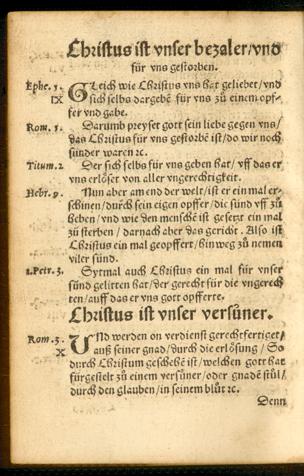 Christus ist vnser bezaler/vnd
für vns gestorben.
Ephe. 5. Gleich wie Christus vns hat geliebet/vnd
IX sich selbs dargebē für vns zu einem opf-
fer vnd gabe.
Rom. 5. Darumb preyset gott sein liebe gegen vns/
das Christus für vns gestorbē ist/do wir noch
sünder waren ꝛc.
Titum. 2 Der sich selbs für vns geben hat/ vff das er
vns erlöset von aller vngerechtigkeit.
Hebr. 9. Nun aber am end der welt/ist er ein mal er-
schinen/durch sein eigen opffer/die sünd vff zů
heben/vnd wie den menschē ist gesetzt ein mal
zů sterben/ darnach aber das gericht. Also ist
Christus ein mal geopffert/hinweg zů nemen
viler sünd.
1. Petr. 3. Sytmal auch Christus ein mal für vnser
sünd gelitten hat/der gerecht für die vngerech
ten/auff das er vns gott opfferte.
Christus ist vnser versüner.
Rom. 3. Vnd werden on verdienst gerechtfertiget/
X auß seiner gnad/durch die erlösung/ So
durch Christum geschehē ist/welchen gott hat
fürgestelt zů einem versüner/oder gnadē stůl/
durch den glauben/in seinem blůt ꝛc.
Denn